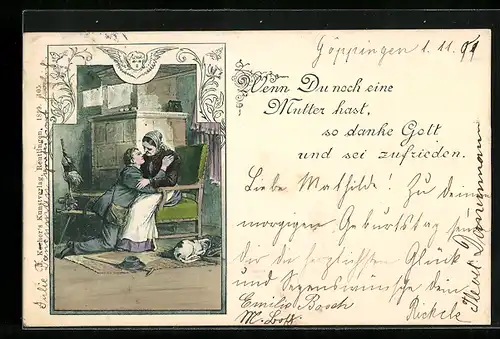 Göppingen 1. 11. 99
Wenn Du noch eine
Mutter hast,
so danke Gott
und sei zufrieden.
Liebe Mathilde! Zu Deinem
morgigen Geburtstag send
dir die herzlichsten Glück
und Segenswünsche dein
Emilie Bosch
Rickele
Kunstverlag, Reutlingen, 1899